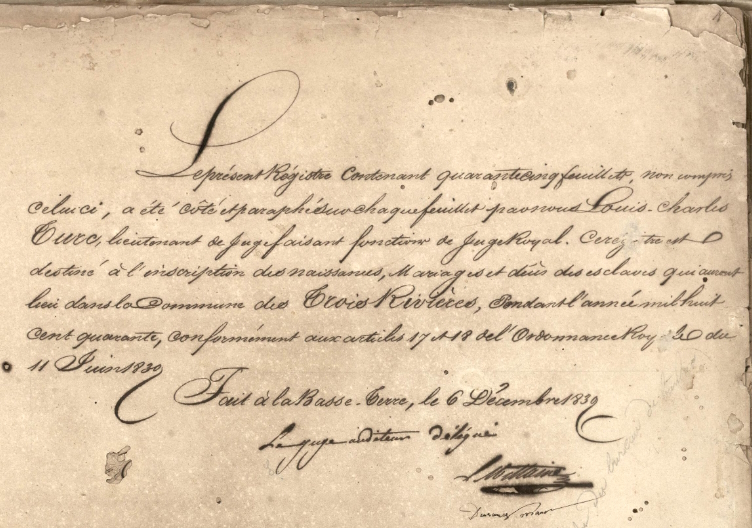 Le présent Régistre Contenant quarantecinq feuillets, non compris
celuici, a été côté et paraphé sur chaque feuillet par nous Louis-Charles
Turc, lieutenant de Juge faisant fonction de Juge Royal. Ce registre est
destiné à l'inscription des naissances, Mariages et décès des esclaves qui auront
lieu dans la Commune des Trois Rivières, Pendant l'année mil huit
cent quarante, conformément aux articles 17 et 18 de l'Ordonnance Royale du
11 Juin 1839
Fait à la Basse-Terre, le 6 Décembre 1839
Le juge auditeur délégué